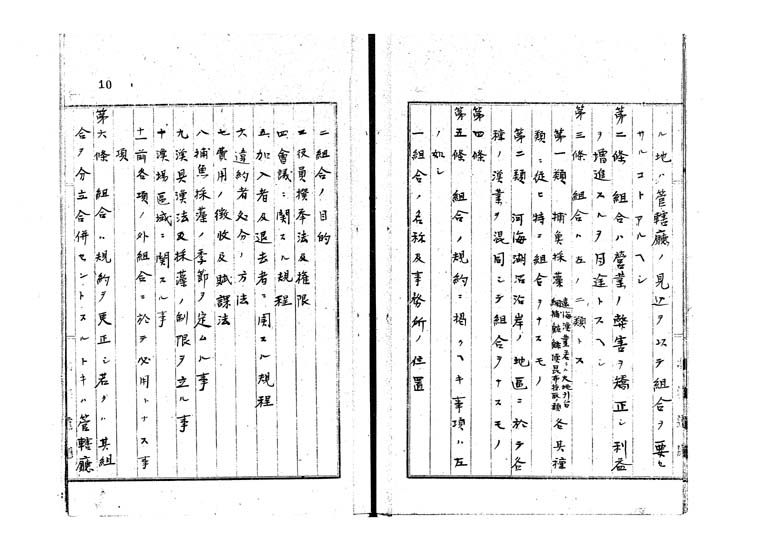 ル地ハ管轄廳ノ見込ヲ以テ組合ヲ要セ
サルコトアルヘシ
第二條 組合ハ營業ノ弊害ヲ矯正シ利益
ヲ増進スルヲ目途トスヘシ
第三條 組合ハ左ノ二類トス
第一類 捕魚採藻 遠海漁業若クハ大地引台網捕鯨鱶漁昆布採取ノ類 各其種
類ニ從ヒ特ニ組合ヲナスモノ
第二類 河海湖沼沿岸ノ地區ニ於テ各
種ノ漁業ヲ混同シテ組合ヲナスモノ
第四條
第五條 組合ノ規約ニ掲クヘキ事項ハ左
ノ如シ
一組合ノ名称及事務所ノ位置
10
二組合ノ目的
三役員撰挙法及權限
四會議ニ関スル規程
五加入者及退去者ニ関スル規程
六違約者処分ノ方法
七費用ノ徴收及賦課法
八捕魚採藻ノ季節ヲ定ムル事
九漁具漁法及採藻ノ制限ヲ立ル事
十漁場區域ニ関スル事
十一前各項ノ外組合ニ於テ必用トナス事
項
第六條 組合ハ規約ヲ更正シ若クハ其組
合ヲ分立合併セントスルトキハ管轄廳